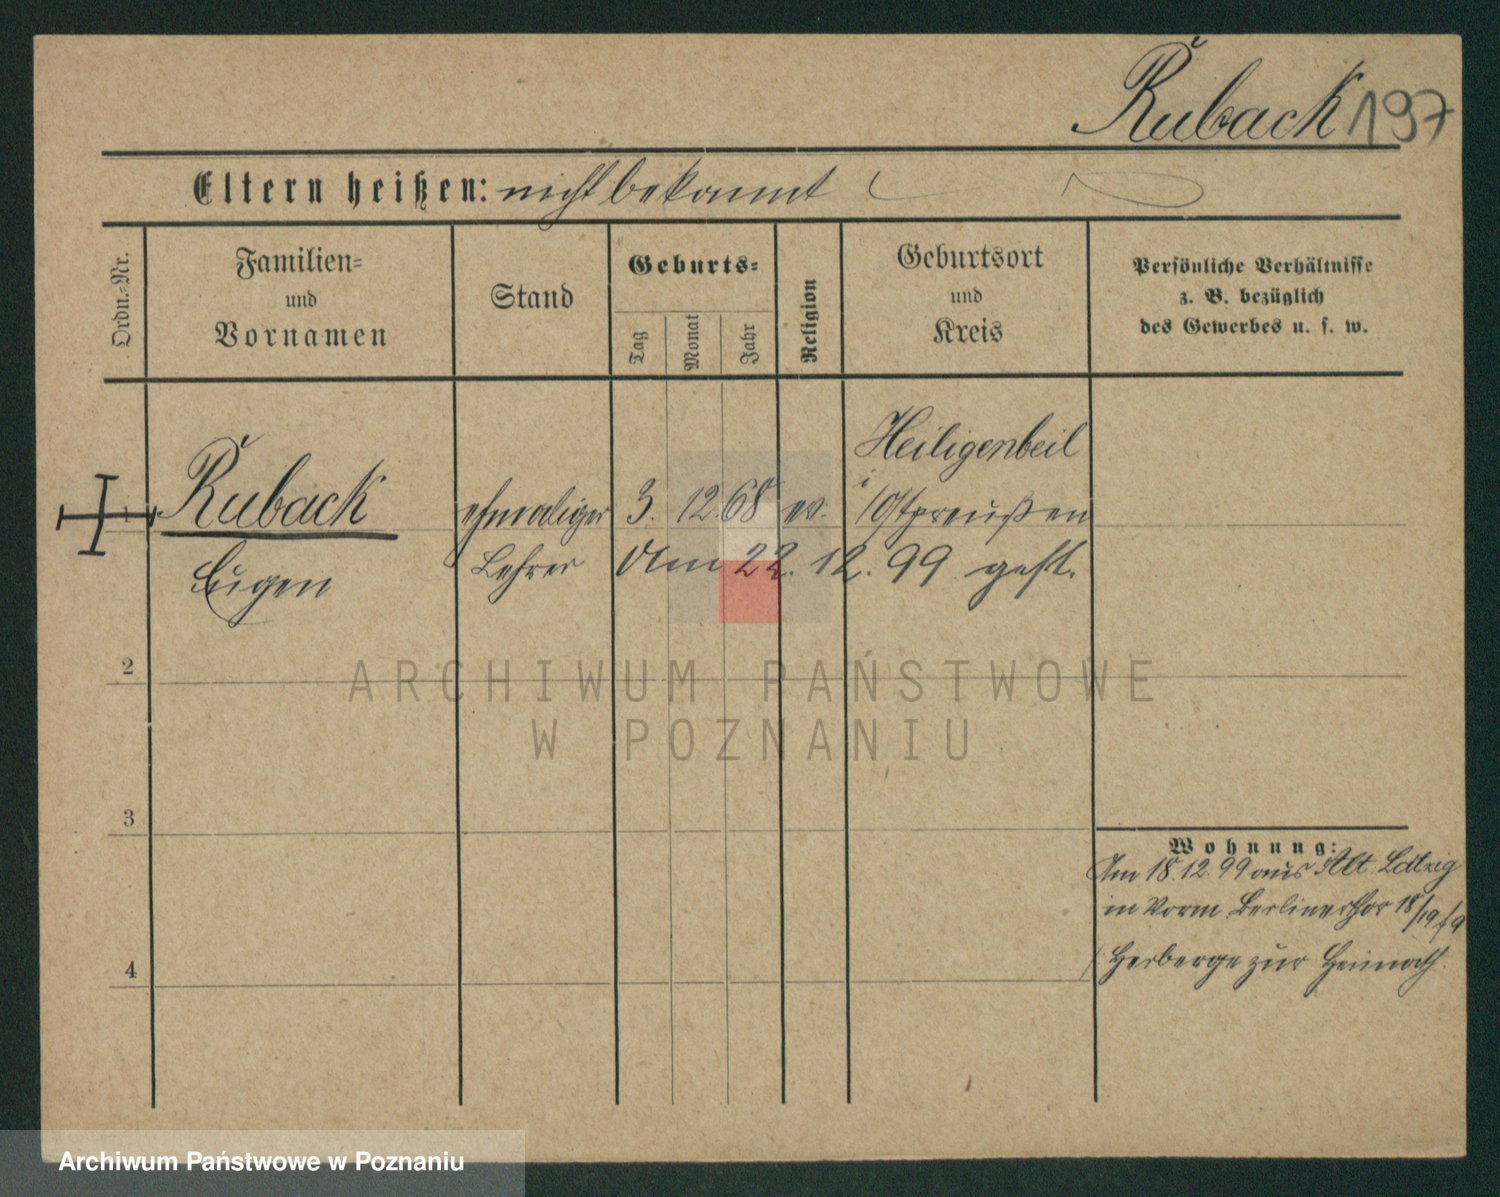 Ruback 197
Eltern heißen: nicht bekannt
Ordn.-Nr.
Familien-
und
Vornamen
Stand
Geburts-
Tag
Monat
Jahr
Religion
Geburtsort
und
Kreis
Persönliche Verhältnisse
z. B. bezüglich
des Gewerbes u. s. w.
1
Ruback
Eugen
ehmaliger
Lehrer
3. 12. 68
ev.
Heiligenbeil
i/Ostpreußen
Am 22. 12. 99 gest.
2
3
4
ARCHIWUM PAŃSTWOWE
W POZNANIU
Wohnung:
Am 18. 12. 99 aus Alt
in Berlinerthor 18/19
Herberge zur Heimath.
Archiwum Państwowe w Poznaniu